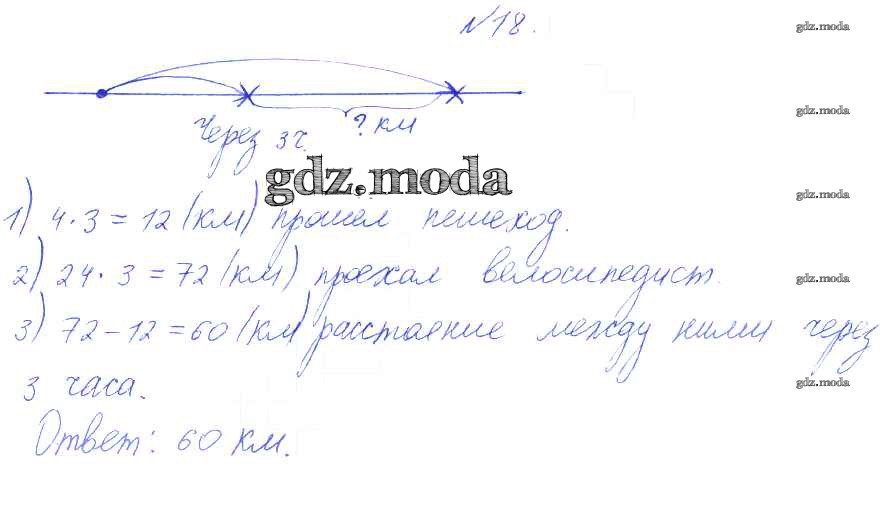 №18.
gdz.moda
gdz.moda
Через 3ч.
? км
gdz.moda
gdz.moda
1) 4·3=12 (км) прошел пешеход.
2) 24·3=72 (км) проехал велосипедист.
gdz.moda
3) 72-12=60 (км) расстояние между ними через
3 часа.
gdz.moda
Ответ: 60 км.